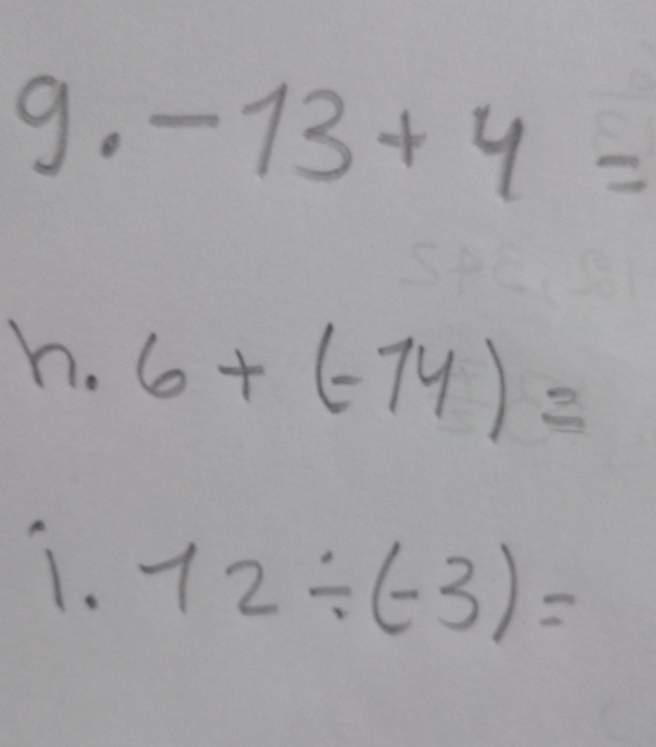 g. -13 + 4 =
h. 6 + (-14) =
i. 12 ÷ (-3) =